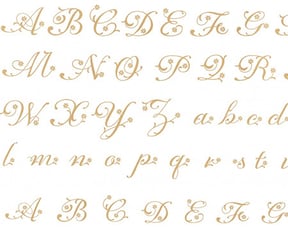 A B C D E F G
M N O P Q R
W X Y Z a b c d
l m n o p q r s t u
A B C D E F G